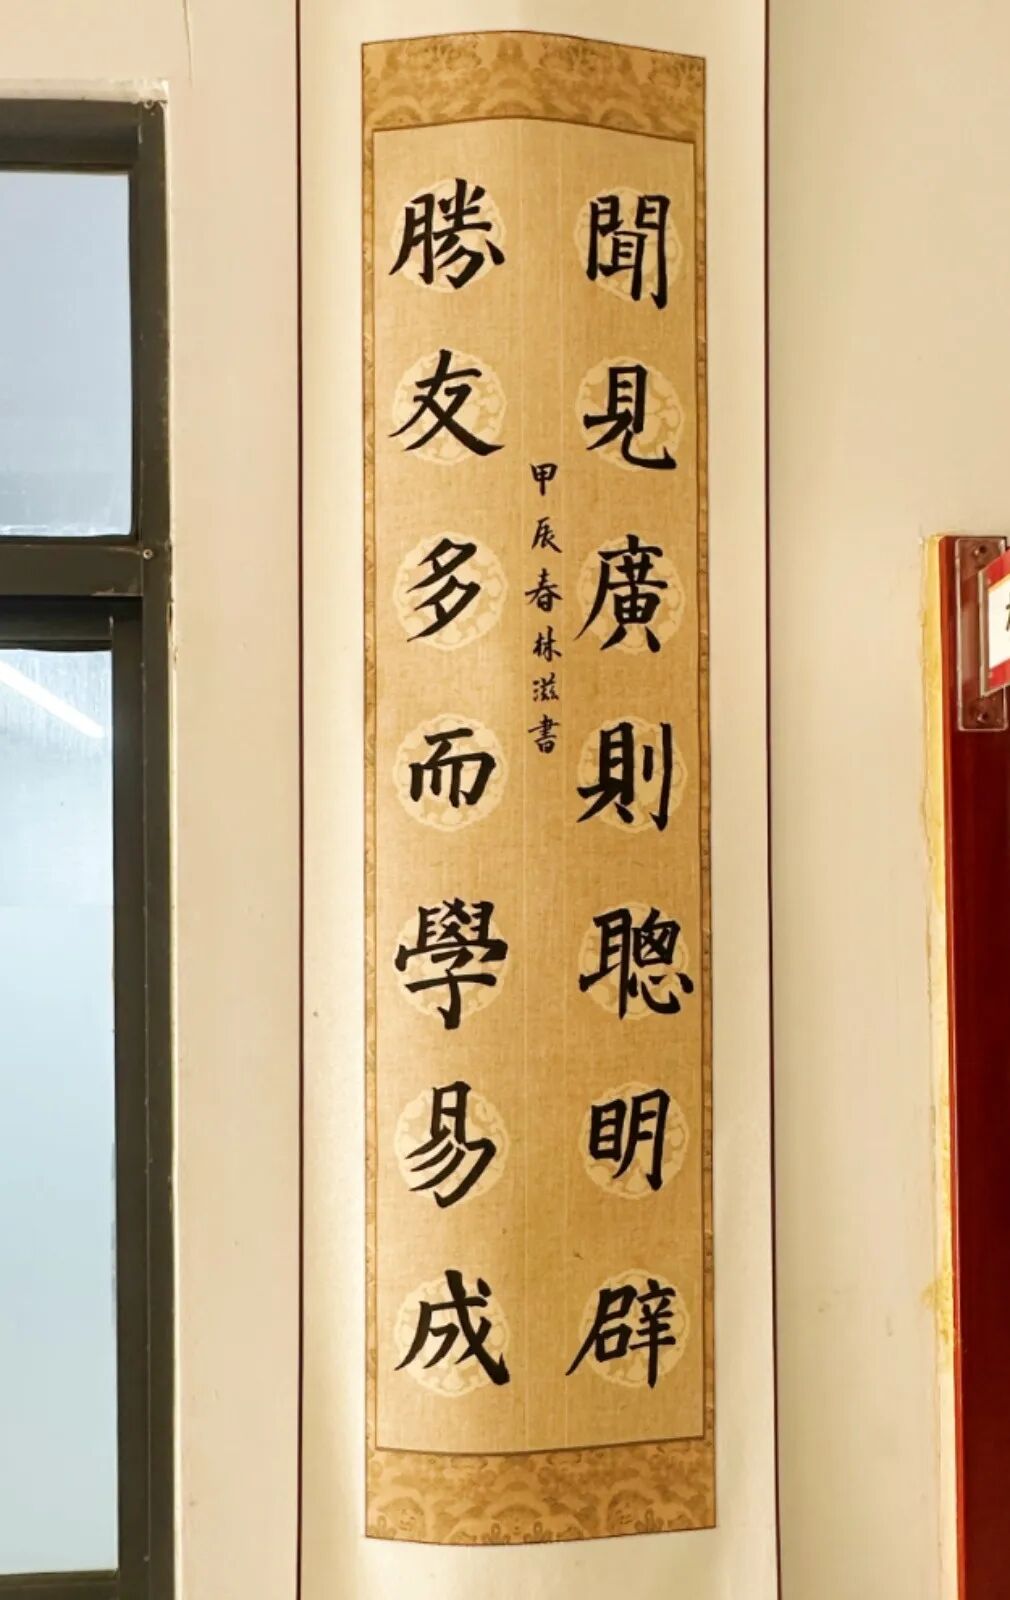 聞見廣則聰明辟
勝友多而學易成
甲辰春林滋書